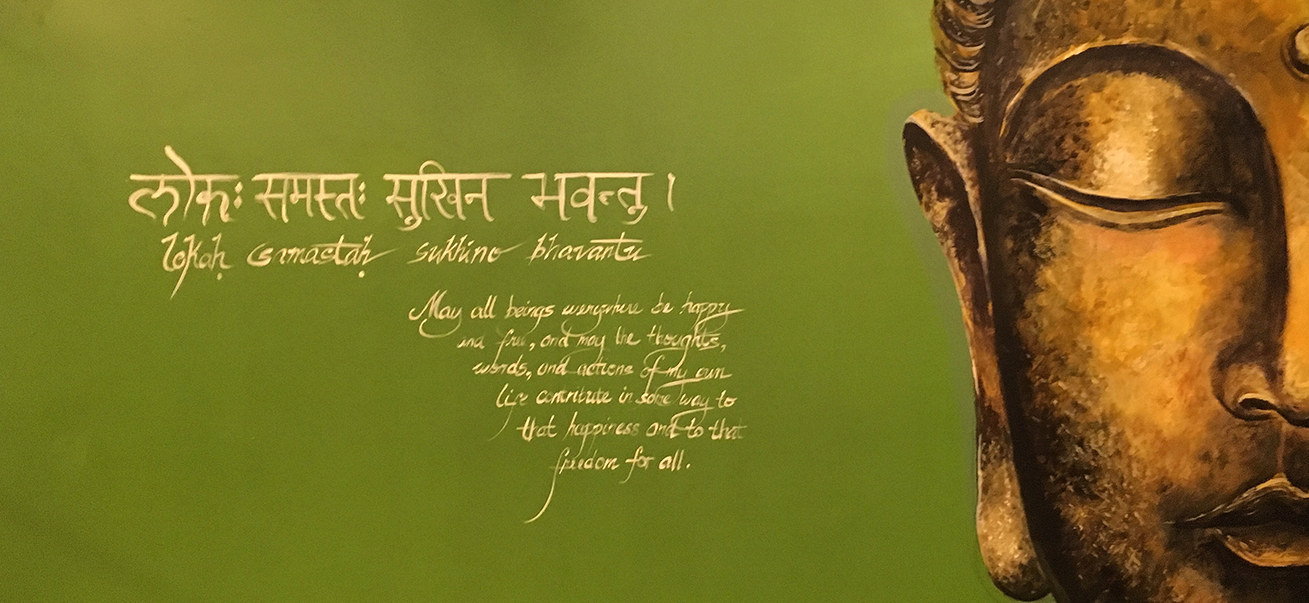 लोकः समस्तः सुखिन भवन्तु ।
lokaḥ samastaḥ sukhino bhavantu
May all beings everywhere be happy
and free, and may the thoughts,
words, and actions of my own
life contribute in some way to
that happiness and to that
freedom for all.